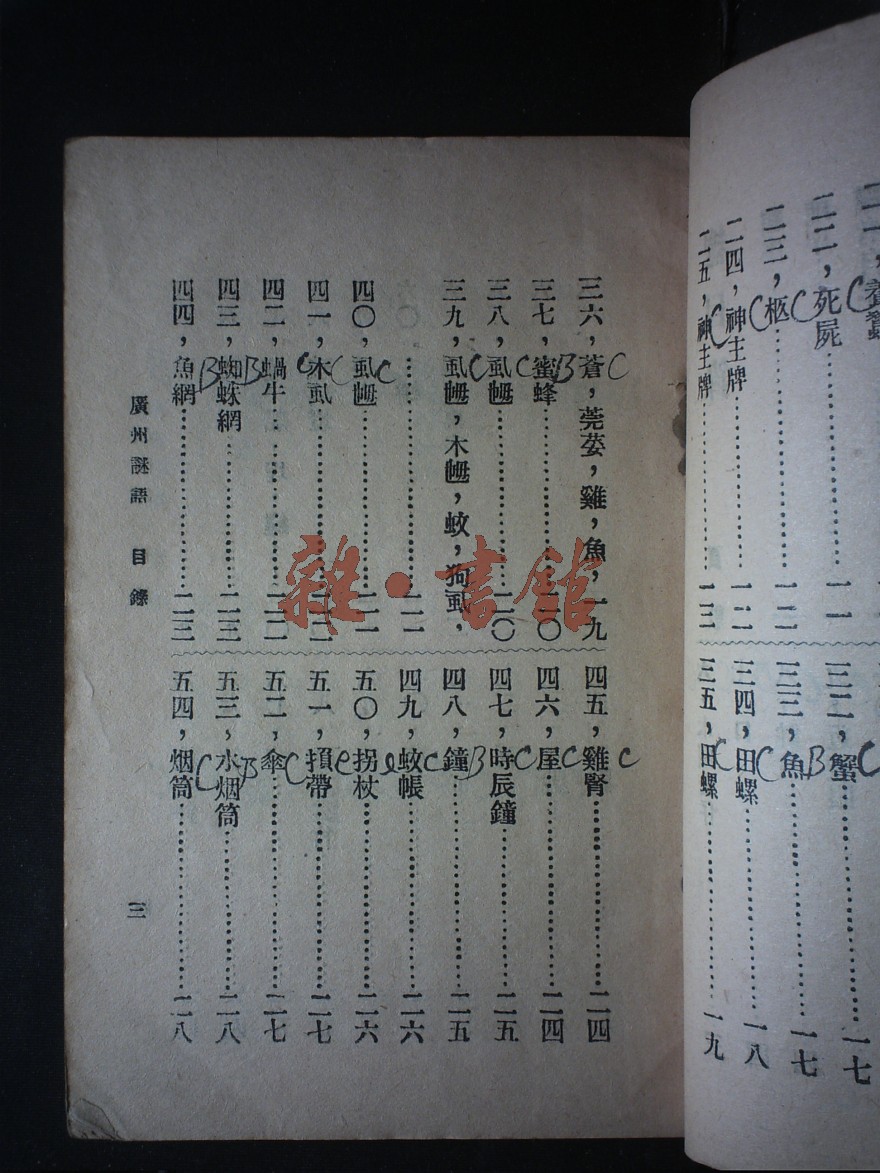 二二，死屍……一一
二三，柩……一二
二四，神主牌……一二
二五，神主牌……一三
三二，蟹……一七
三三，魚……一七
三四，田螺……一八
三五，田螺……一九
三六，蒼，莞荽，雞，魚，一九
三七，蜜蜂……二〇
三八，虱乸……二〇
三九，虱乸，木乸，蚊，狗虱，
……二一
四〇，虱乸……二一
四一，木虱……二二
四二，蝸牛……二二
四三，蜘蛛網……二三
四四，魚網……二三
四五，雞腎……二四
四六，屋……二四
四七，時辰鐘……二五
四八，鐘……二五
四九，蚊帳……二六
五〇，拐杖……二六
五一，𢱕帶……二七
五二，傘……二七
五三，水烟筒……二八
五四，烟筒……二八
廣州謎語 目錄
三
雜·書館